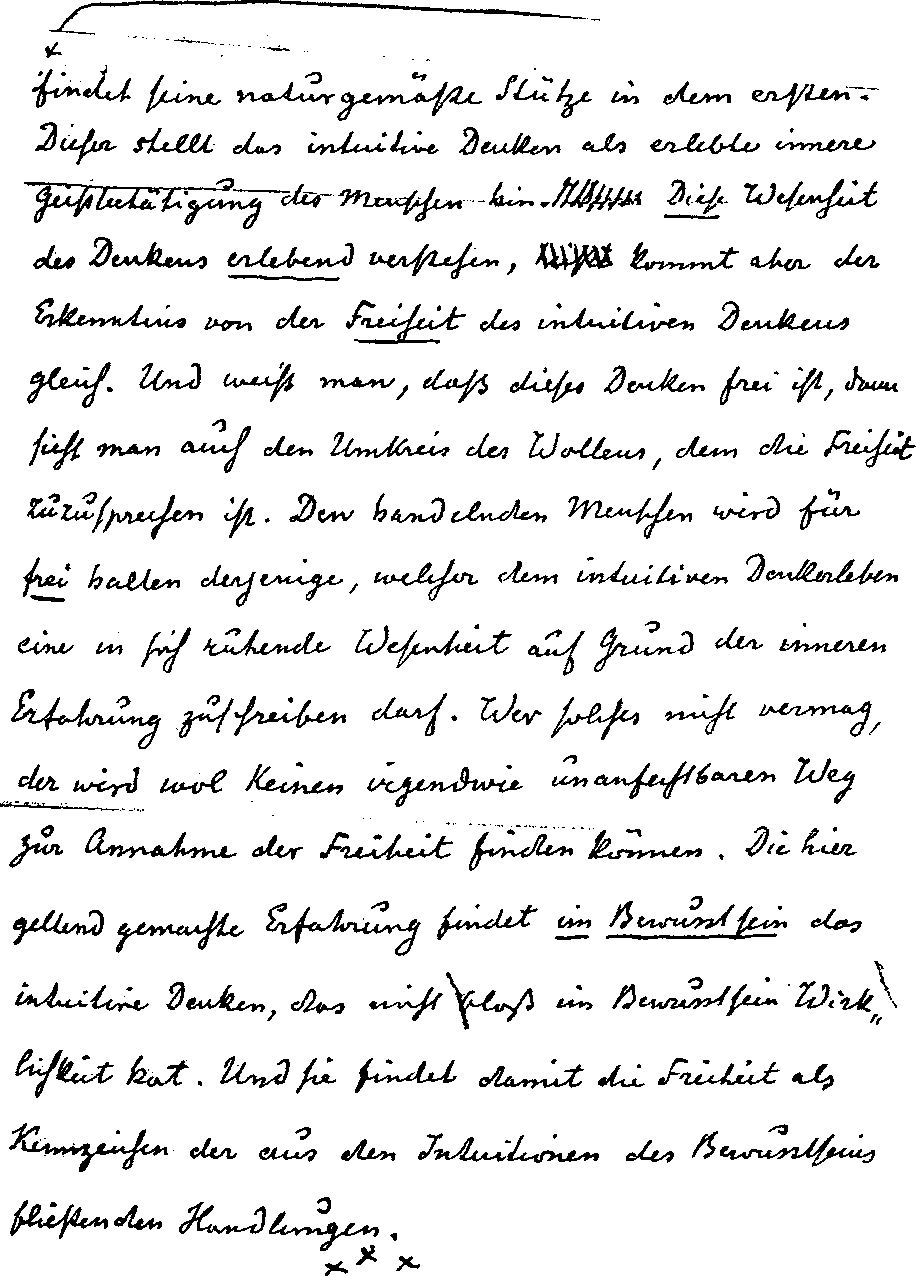 findet seine naturgemäße Stütze in dem ersten.
Dieser stellt das intuitive Denken als erlebte innere
Geistbetätigung des Menschen hin. Diese Wesenheit
des Denkens erlebend verstehen, kommt aber der
Erkenntnis von der Freiheit des intuitiven Denkens
gleich. Und weiß man, daß dieses Denken frei ist, dann
sieht man auch den Umkreis des Wollens, dem die Freiheit
zuzusprechen ist. Den handelnden Menschen wird für
frei halten derjenige, welcher dem intuitiven Denkerleben
eine in sich ruhende Wesenheit auf Grund der inneren
Erfahrung zuschreiben darf. Wer solches nicht vermag,
der wird wol keinen irgendwie unanfechtbaren Weg
zur Annahme der Freiheit finden können. Die hier
geltend gemachte Erfahrung findet im Bewusstsein das
intuitive Denken, das nicht bloß im Bewusstsein Wirk„
lichkeit hat. Und sie findet damit die Freiheit als
Kennzeichen der aus den Intuitionen des Bewusstseins
fließenden Handlungen.
× × ×